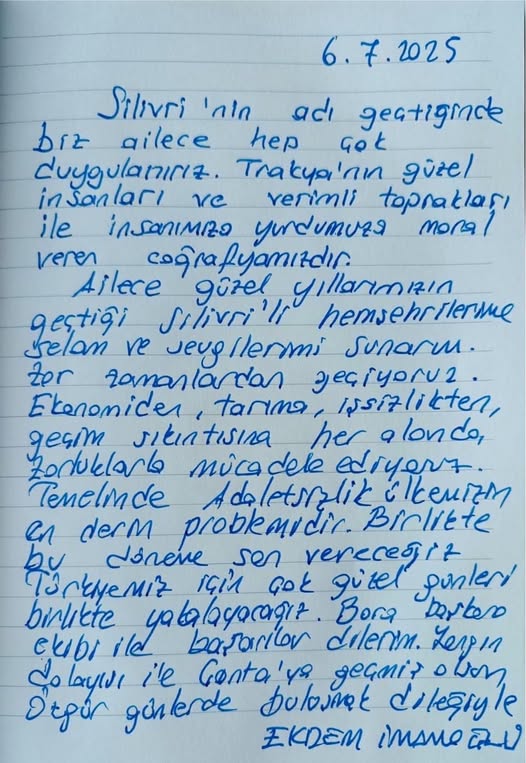 6.7.2025
Silivri'nin adı geçtiğinde
biz ailece hep çok
duygulanırız. Trakya'nın güzel
insanları ve verimli toprakları
ile insanımıza yurdumuza moral
veren coğrafyamızdır.
Ailece güzel yıllarımızın
geçtiği Silivri'li hemşehrilerime
selam ve sevgilerimi sunarım.
Zor zamanlardan geçiyoruz.
Ekonomiden, tarıma, işsizlikten,
geçim sıkıntısına her alanda,
zorluklarla mücadele ediyoruz.
Temelinde Adaletsizlik ülkemizin
en derin problemidir. Birlikte
bu döneme son vereceğiz
Türkiyemiz için çok güzel günleri
birlikte yakalayacağız. Bora başkana
ekibi ile başarılar dilerim. Yangın
dolayısı ile Çanta'ya geçmiş olsun
Özgür günlerde buluşmak dileğiyle
EKREM İMAMOĞLU